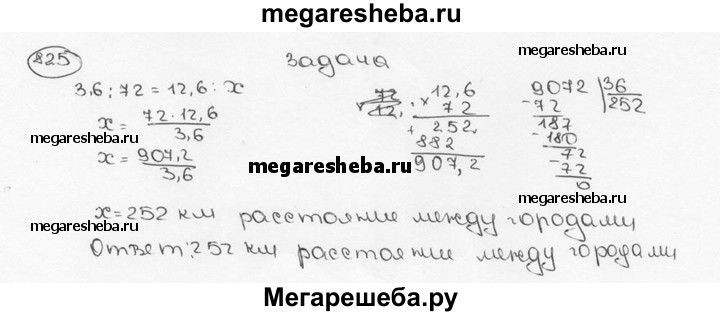 megaresheba.ru
825 задача
megaresheba.ru
3,6 : 72 = 12,6 : х
х = 72 · 12,6 / 3,6
х = 907,2 / 3,6
12,6
× 72
+ 252
882
907,2
9072 | 36
- 72 252
187
- 180
72
- 72
0
megaresheba.ru
megaresheba.ru
megaresheba.ru
megaresheba.ru
х = 252 км расстояние между городами
Ответ: 252 км расстояние между городами
megaresheba.ru
megaresheba.ru
Мегарешеба.ру